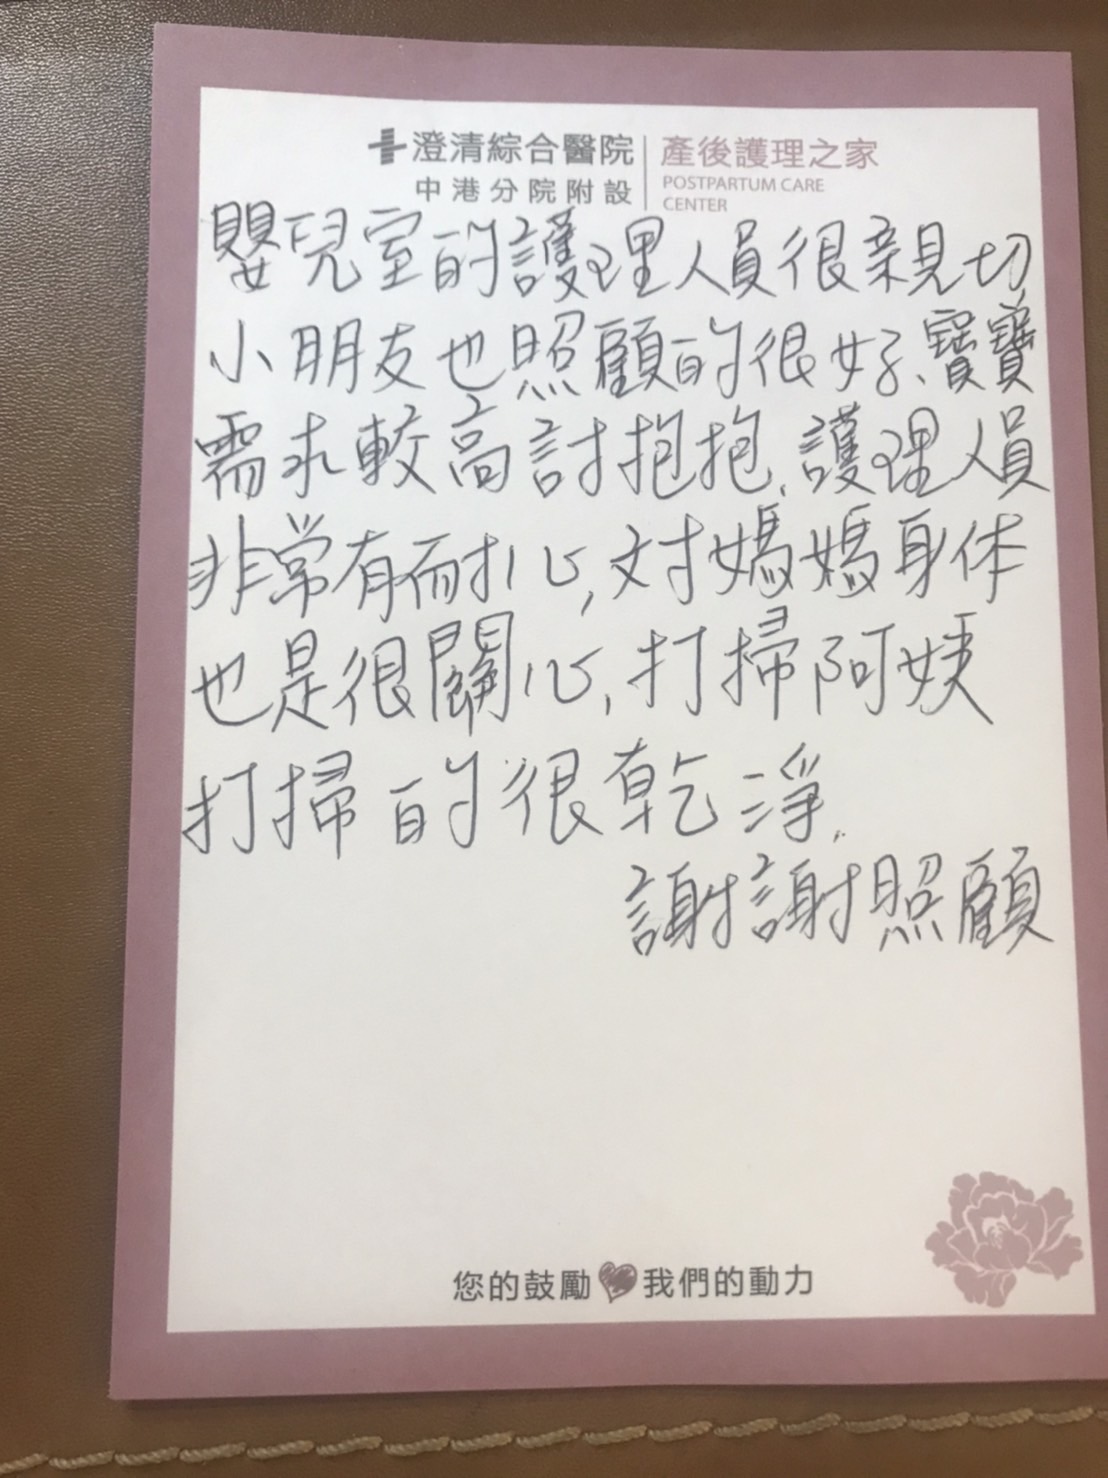 澄清綜合醫院
中港分院附設
產後護理之家
POSTPARTUM CARE
CENTER
嬰兒室的護理人員很親切
小朋友也照顧的很好、寶寶
需求較高討抱抱、護理人員
非常有耐心,对媽媽身体
也是很關心,打掃阿姨
打掃的很乾淨.
謝謝照顧
您的鼓勵 我們的動力